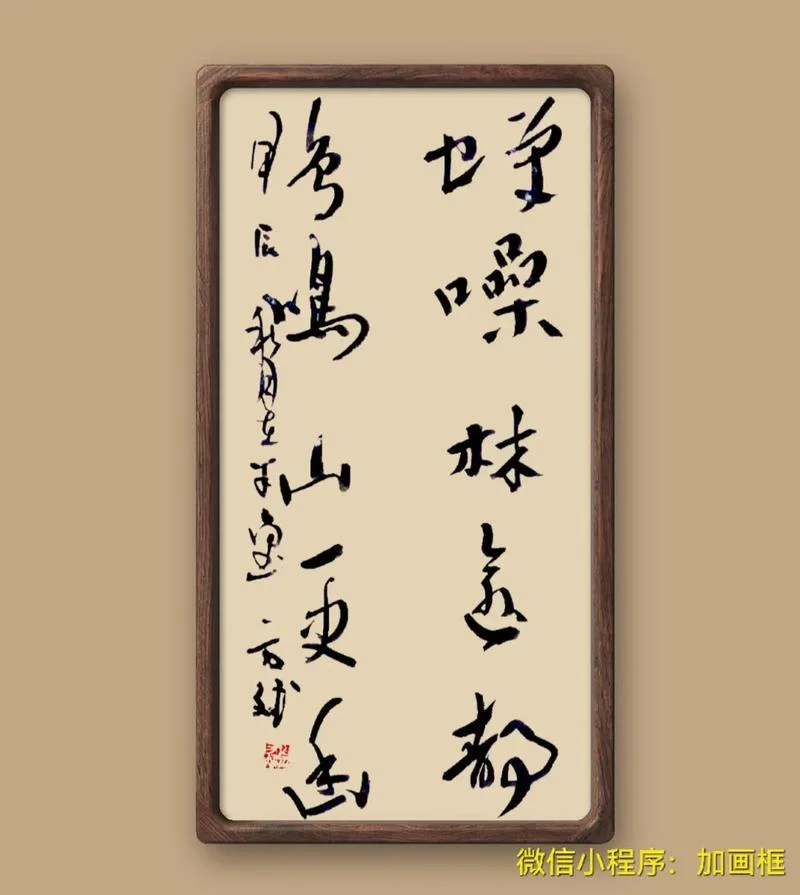 蝉噪林逾静
鸟鸣山更幽
甲辰秋月
微信小程序：加画框